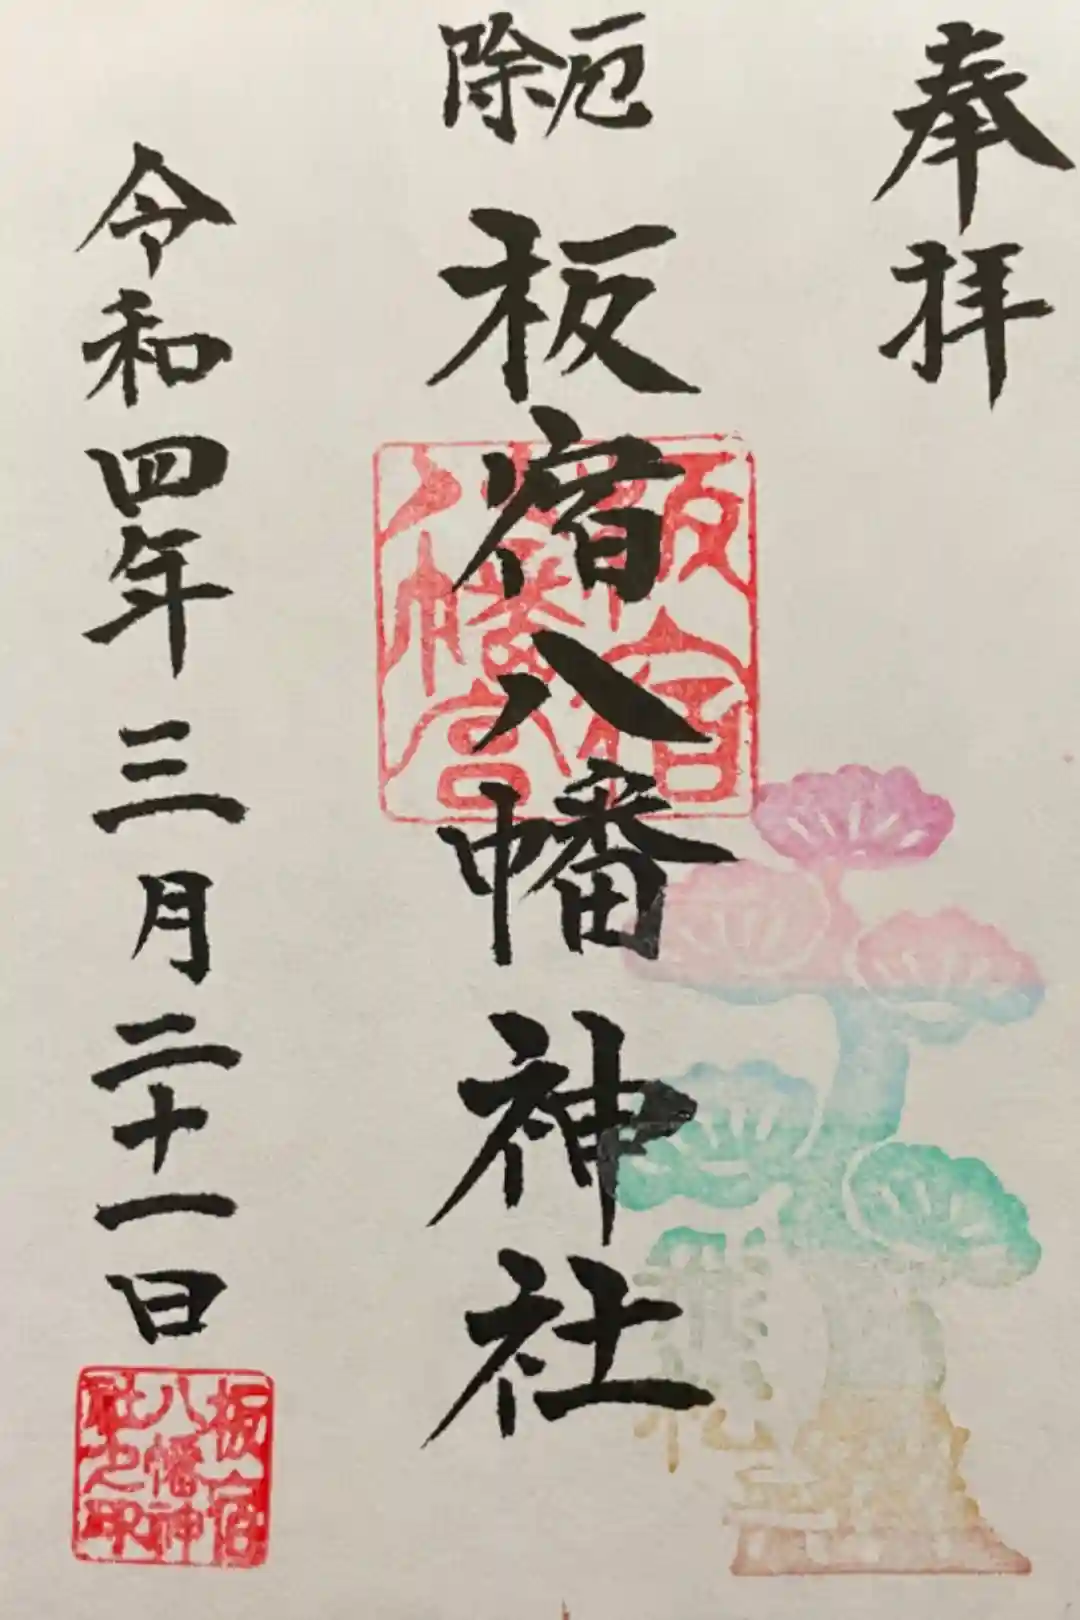 奉拝
厄除
板宿八幡神社
板宿
八幡宮
飛松
令和四年三月二十一日
板宿
八幡神
社之印